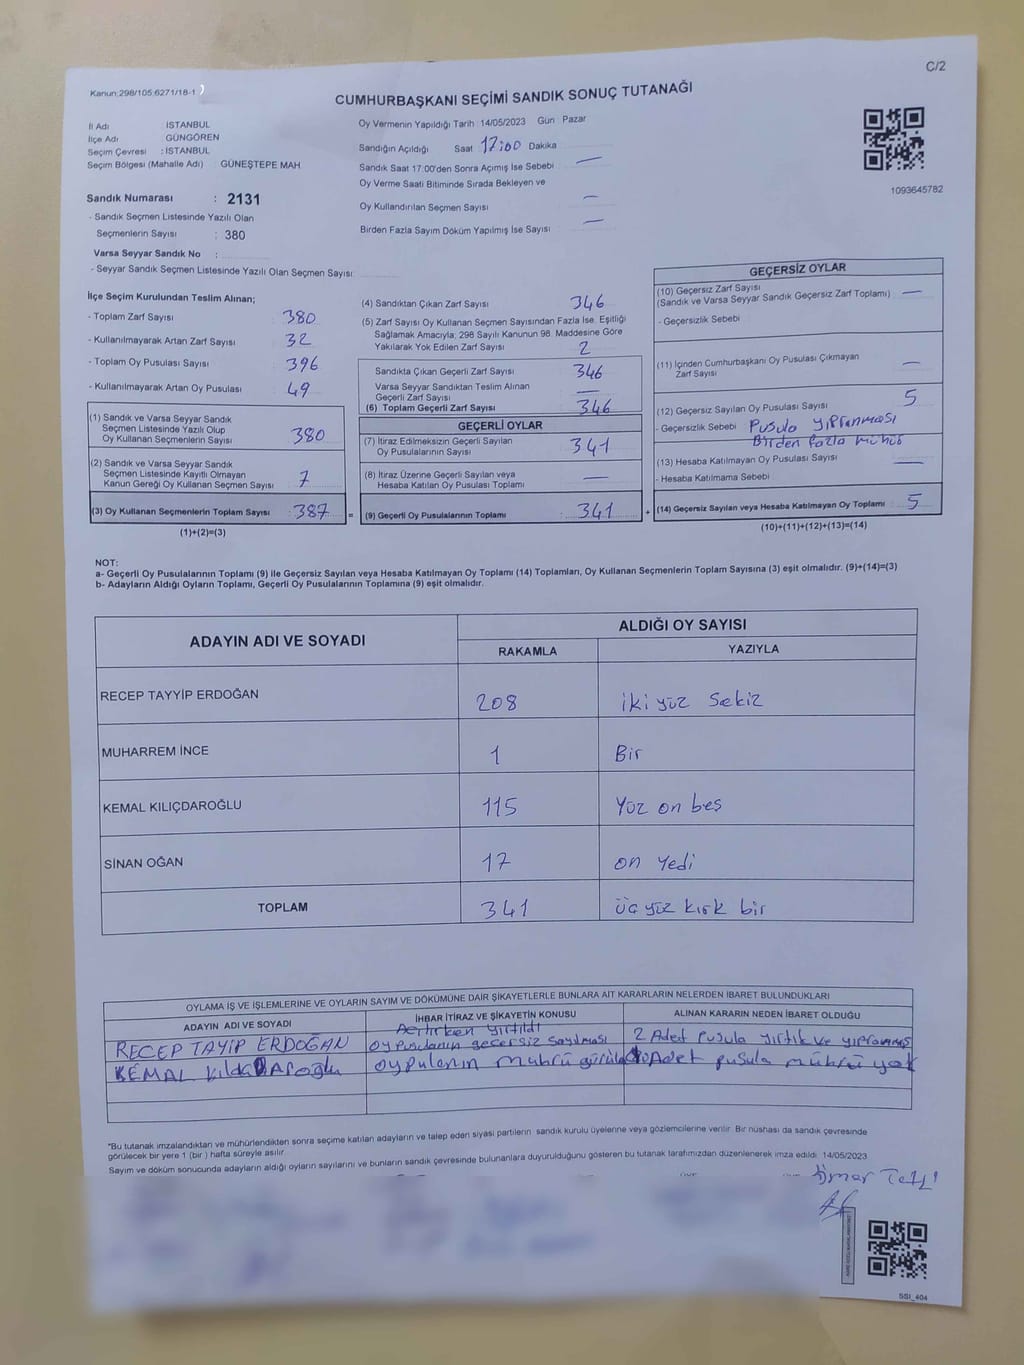 C/2
Kanun:298/105 6271/18-1
CUMHURBAŞKANI SEÇİMİ SANDIK SONUÇ TUTANAĞI
İl Adı : İSTANBUL
İlçe Adı : GÜNGÖREN
Seçim Çevresi : İSTANBUL
Seçim Bölgesi (Mahalle Adı) GÜNEŞTEPE MAH
Oy Vermenin Yapıldığı Tarih :14/05/2023 Gün Pazar
Sandığın Açıldığı Saat 17:00 Dakika
Sandık Saat 17:00'den Sonra Açımış İse Sebebi —
Oy Verme Saati Bitiminde Sırada Bekleyen ve
Oy Kullandırılan Seçmen Sayısı —
Birden Fazla Sayım Döküm Yapılmış İse Sayısı —
1093645782
Sandık Numarası : 2131
- Sandık Seçmen Listesinde Yazılı Olan
Seçmenlerin Sayısı : 380
Varsa Seyyar Sandık No :
- Seyyar Sandık Seçmen Listesinde Yazılı Olan Seçmen Sayısı
İlçe Seçim Kurulundan Teslim Alınan;
- Toplam Zarf Sayısı : 380
- Kullanılmayarak Artan Zarf Sayısı : 32
- Toplam Oy Pusulası Sayısı : 396
- Kullanılmayarak Artan Oy Pusulası : 49
(1) Sandık ve Varsa Seyyar Sandık
Seçmen Listesinde Yazılı Olup
Oy Kullanan Seçmenlerin Sayısı : 380
(2) Sandık ve Varsa Seyyar Sandık
Seçmen Listesinde Kayıtlı Olmayan
Kanun Gereği Oy Kullanan Seçmen Sayısı : 7
(3) Oy Kullanan Seçmenlerin Toplam Sayısı : 387 =
(1)+(2)=(3)
(4) Sandıktan Çıkan Zarf Sayısı 346
(5) Zarf Sayısı Oy Kullanan Seçmen Sayısından Fazla İse, Eşitliği
Sağlamak Amacıyla, 298 Sayılı Kanunun 98. Maddesine Göre
Yakılarak Yok Edilen Zarf Sayısı 2
Sandıkta Çıkan Geçerli Zarf Sayısı 346
Varsa Seyyar Sandıktan Teslim Alınan
Geçerli Zarf Sayısı —
(6) Toplam Geçerli Zarf Sayısı 346
GEÇERLİ OYLAR
(7) İtiraz Edilmeksizin Geçerli Sayılan
Oy Pusulalarının Sayısı : 341
(8) İtiraz Üzerine Geçerli Sayılan veya
Hesaba Katılan Oy Pusulası Toplamı : —
(9) Geçerli Oy Pusulalarının Toplamı : 341 +
GEÇERSİZ OYLAR
(10) Geçersiz Zarf Sayısı
(Sandık ve Varsa Seyyar Sandık Geçersiz Zarf Toplamı) —
- Geçersizlik Sebebi
(11) İçinden Cumhurbaşkanı Oy Pusulası Çıkmayan
Zarf Sayısı —
(12) Geçersiz Sayılan Oy Pusulası Sayısı 5
- Geçersizlik Sebebi Pusula yıpranması
Birden fazla mühür
(13) Hesaba Katılmayan Oy Pusulası Sayısı —
- Hesaba Katılmama Sebebi
(14) Geçersiz Sayılan veya Hesaba Katılmayan Oy Toplamı 5
(10)+(11)+(12)+(13)=(14)
NOT:
a- Geçerli Oy Pusulalarının Toplamı (9) ile Geçersiz Sayılan veya Hesaba Katılmayan Oy Toplamı (14) Toplamları, Oy Kullanan Seçmenlerin Toplam Sayısına (3) eşit olmalıdır. (9)+(14)=(3)
b- Adayların Aldığı Oyların Toplamı, Geçerli Oy Pusulalarının Toplamına (9) eşit olmalıdır.
ADAYIN ADI VE SOYADI ALDIĞI OY SAYISI
RAKAMLA YAZIYLA
RECEP TAYYİP ERDOĞAN 208 iki yüz sekiz
MUHARREM İNCE 1 Bir
KEMAL KILIÇDAROĞLU 115 Yüz on beş
SİNAN OĞAN 17 on Yedi
TOPLAM 341 üç yüz kırk bir
OYLAMA İŞ VE İŞLEMLERİNE VE OYLARIN SAYIM VE DÖKÜMÜNE DAİR ŞİKAYETLERLE BUNLARA AİT KARARLARIN NELERDEN İBARET BULUNDUKLARI
ADAYIN ADI VE SOYADI İHBAR İTİRAZ VE ŞİKAYETİN KONUSU ALINAN KARARIN NEDEN İBARET OLDUĞU
Açılırken yırtıldı
RECEP TAYİP ERDOĞAN oy pusulanın geçersiz sayılması 2 Adet Pusula yırtık ve yıpranmış
KEMAL adet pusula mühürü yok
*Bu tutanak imzalandıktan ve mühürlendikten sonra seçime katılan adayların ve talep eden siyasi partilerin sandık kurulu üyelerine veya gözlemcilerine verilir. Bir nüshası da sandık çevresinde
görülecek bir yere 1 (bir ) hafta süreyle asılır.
Sayım ve döküm sonucunda adayların aldığı oyların sayılarını ve bunların sandık çevresinde bulunanlara duyurulduğunu gösteren bu tutanak tarafımızdan düzenlenerek imza edildi. 14/05/2023
SSI_404